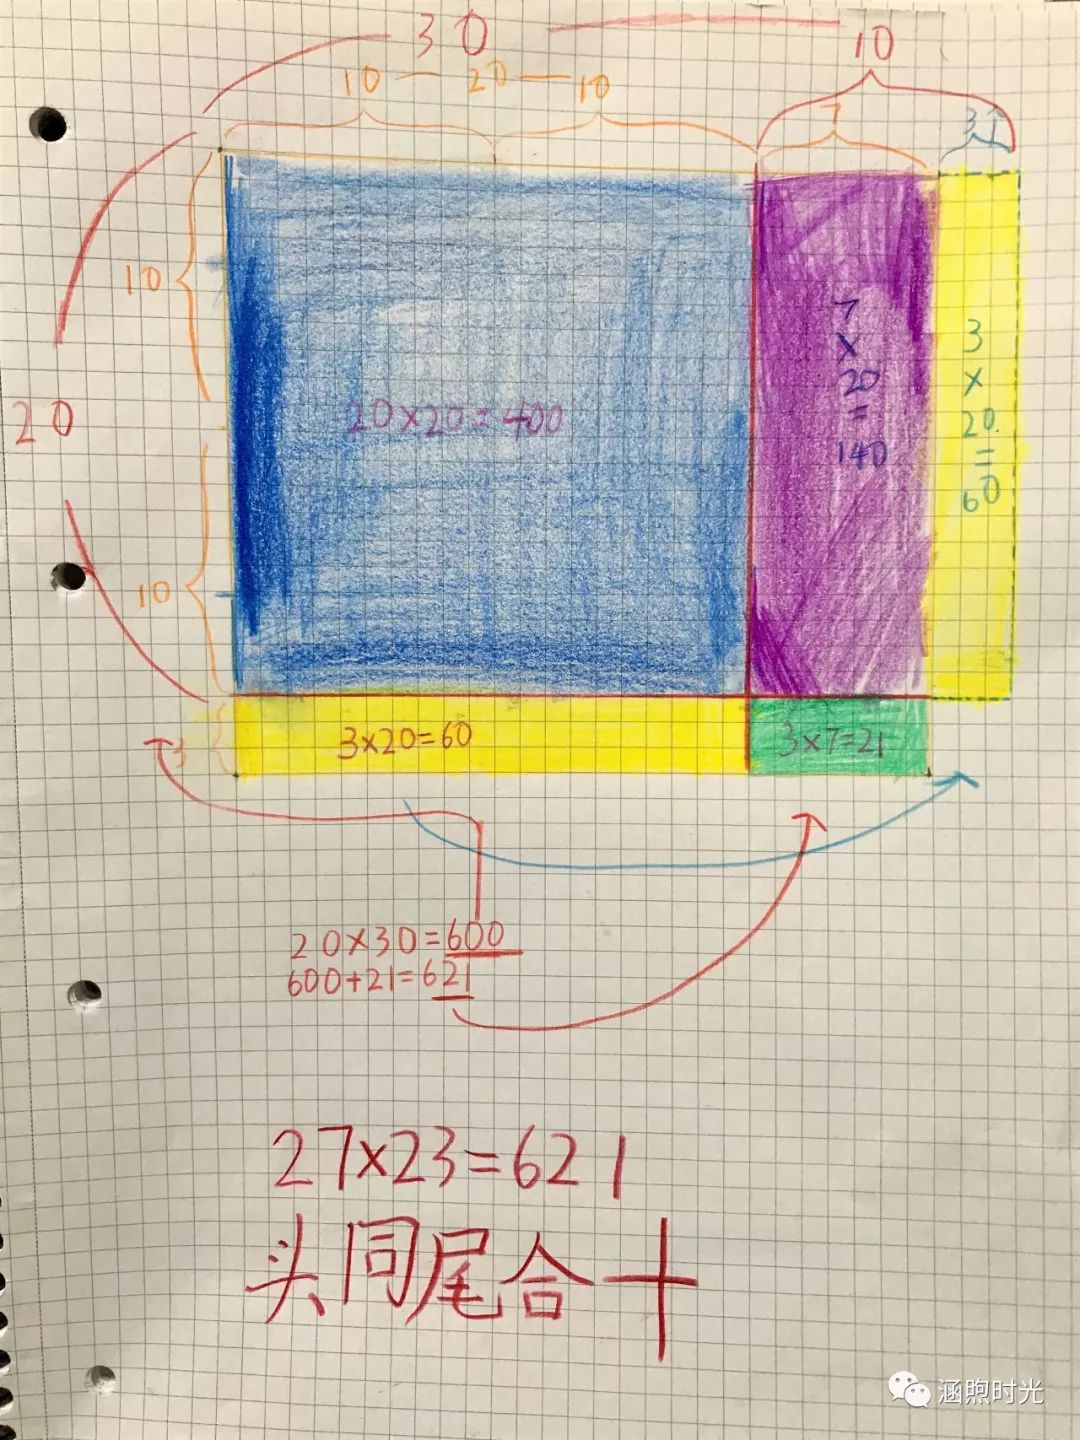 30
10
10 — 20 — 10
7
3
10
20
10
3
20×20=400
7
×
20
=
140
3
×
20
=
60
3×20=60
3×7=21
20×30=600
600+21=621
27×23=621
头同尾合十
涵煦时光